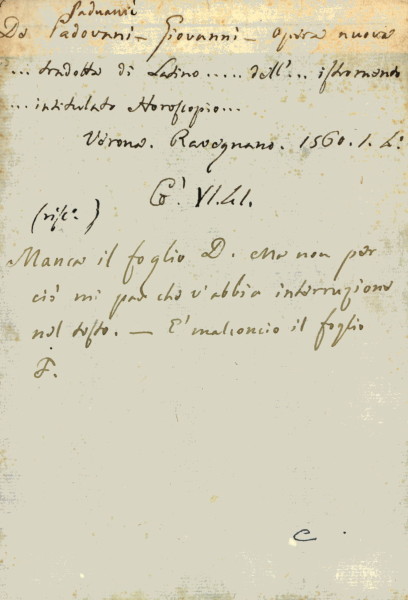 Paduanii
De Padovani - Giovanni - opera nuova
... tradotta di Latino ..... dell'... istromento
... intitulato Horoscopio...
Verona. Ravagnano. 1560. 1. 4.º
Co' VI.41.
(rifᵉ.)
Manca il foglio D. Ma non per
ciò mi par che v'abbia interruzione
nel testo. — E' malconcio il foglio
F.
C.